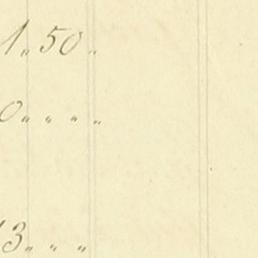 1.50.
0 . . . .
13 . . .